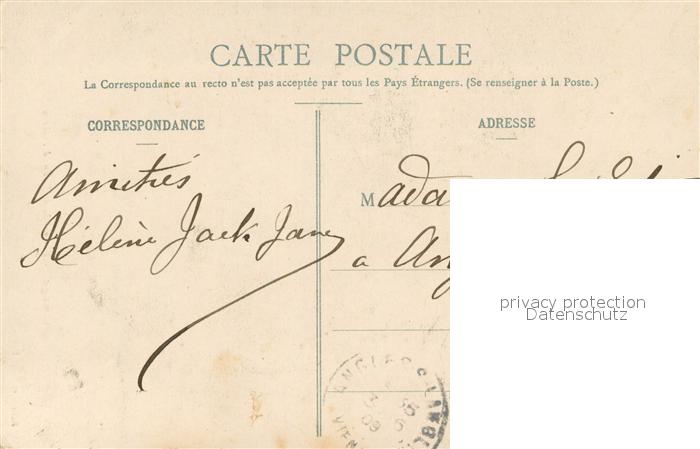 CARTE POSTALE
La Correspondance au recto n'est pas acceptée par tous les Pays Étrangers. (Se renseigner à la Poste.)
CORRESPONDANCE
ADRESSE
Amitiés
Hélène Jack Jane
a
privacy protection
Datenschutz
ANGLES S L'AN
09